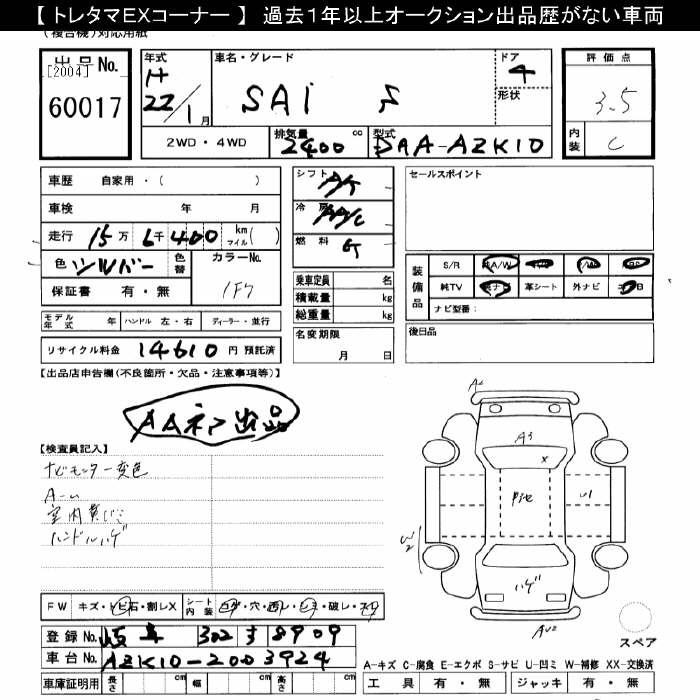 【 トレタマEXコーナー 】 過去1年以上オークション出品歴がない車両
(複合機)対応用紙
出品No.
[2004]
60017
年式
H
22/1月
車名・グレード
SAI S
ドア
4
形状
評価点
3.5
内装
C
2WD・4WD
排気量 2400 cc
型式 DAA-AZK10
車歴 自家用・( )
車検 年 月
走行 15万 6千 400 km マイル( )
色 シルバー 色替
カラーNo. 1F7
保証書 有・無
シフト A/T
冷房 AA/C
燃料 G
乗車定員 名
積載量 kg
総重量 kg
名変期限
月 日
セールスポイント
装備品
S/R 純A/W
純TV 純ナビ 革シート 外ナビ
ナビ型番:
後日品
モデル年式 年 ハンドル 左・右 ディーラー・並行
リサイクル料金 14610 円 預託済
【出品店申告欄(不良箇所・欠品・注意事項等)】
AAネク出品
【検査員記入】
ナビモニター変色
室内黄バミ
ハンドルハゲ
A2
A3
X
U1
W2
ハゲ
AU2
FW キズ・トビ石・割レX
シート内装 コゲ・穴・汚レ・シミ・破レ・スレ
登録No. 岐阜 302 す 8909
車台No. AZK10-2003924
車庫証明用 長さ cm 幅 cm 高さ cm
スペア
A-キズ C-腐食 E-エクボ S-サビ U-凹ミ W-補修 XX-交換済
工具 有・無 ジャッキ 有・無